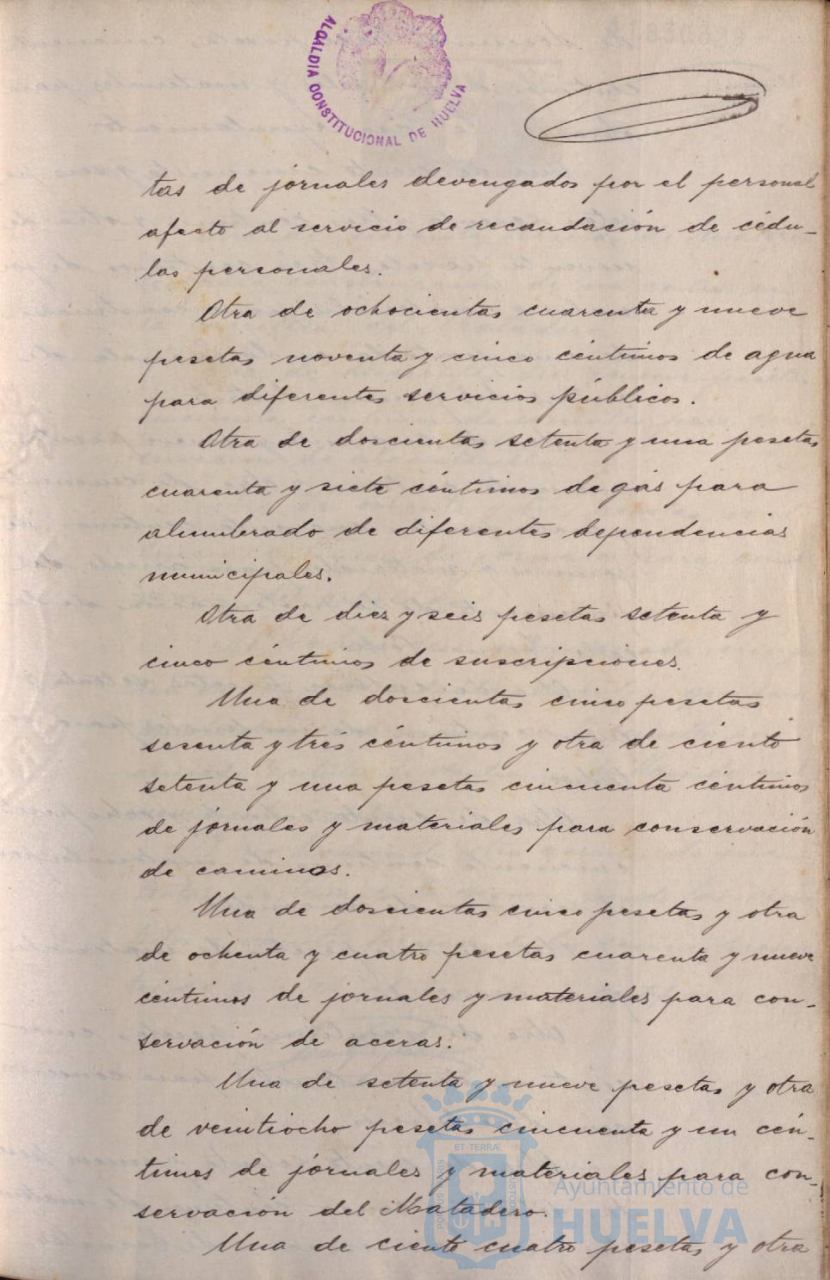 ALCALDIA CONSTITUCIONAL DE HUELVA
tas de jornales devengados por el personal
afecto al servicio de recaudación de cédu-
las personales.
Otra de ochocientas cuarenta y nueve
pesetas noventa y cinco céntimos de agua
para diferentes servicios públicos.
Otra de doscientas setenta y una pesetas
cuarenta y siete céntimos de gas para
alumbrado de diferentes dependencias
municipales.
Otra de diez y seis pesetas setenta y
cinco céntimos de suscripciones.
Una de doscientas cinco pesetas
sesenta y tres céntimos y otra de ciento
setenta y una pesetas cincuenta céntimos
de jornales y materiales para conservación
de caminos.
Una de doscientas cinco pesetas y otra
de ochenta y cuatro pesetas cuarenta y nueve
céntimos de jornales y materiales para con-
servación de aceras.
Una de setenta y nueve pesetas y otra
de veintiocho pesetas cincuenta y un cén-
timos de jornales y materiales para con-
servación del Matadero.
Una de ciento cuatro pesetas y otra
Ayuntamiento de
HUELVA